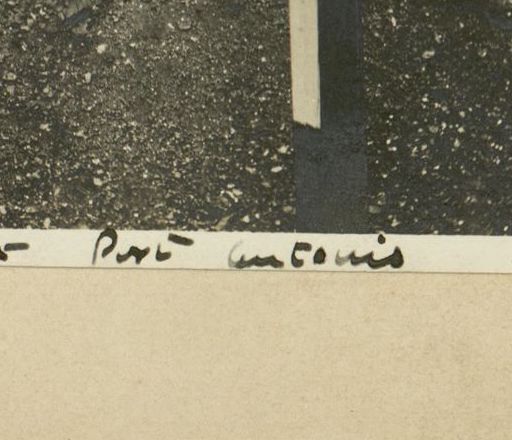 Port Antonio